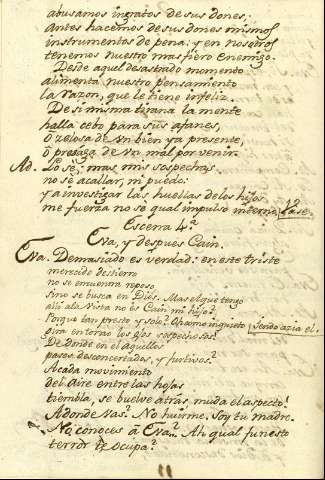 abusamos ingratos de sus dones:
Antes hacemos de sus dones mismos
instrumentos de pena: y en nosotros
tenemos nuestro mas fiero enemigo.
Desde aquel desastrado momento
alimenta nuestro pensamiento
la razon, que le tiene infeliz.
De si misma tirana la mente
halla cebo para sus afanes,
ò zelosa de vn bien ya presente,
ò presaga de vn mal por venir.
Ad. Lo sè, mas mis sospechas
no sè acallar, ni puedo:
y a investigar las huellas de los hijos
me fuerza no sè qual impulso interno. Vase.
Escena 4ª
Eva, y despues Cain.
Eva. Demasiado es verdad: en este triste
merecido destierro
no se encuentra reposo,
Sino se busca en Dios. Mas el que tengo
alli a la Vista no es Cain mi hijo?
Porque tan presto y solo? O como inquieto Yendo azia el.
gira entorno los ojos sospechosos!
De donde en el aquellos
pasos desconcertados, y furtivos?
A cada movimiento
del aire entre las hojas
tiembla, se buelve atrás, muda el aspecto!
Adonde Vas? No huirme. Soy tu madre.
No conoces à Eva? Ah qual funesto
terror te ocupa?